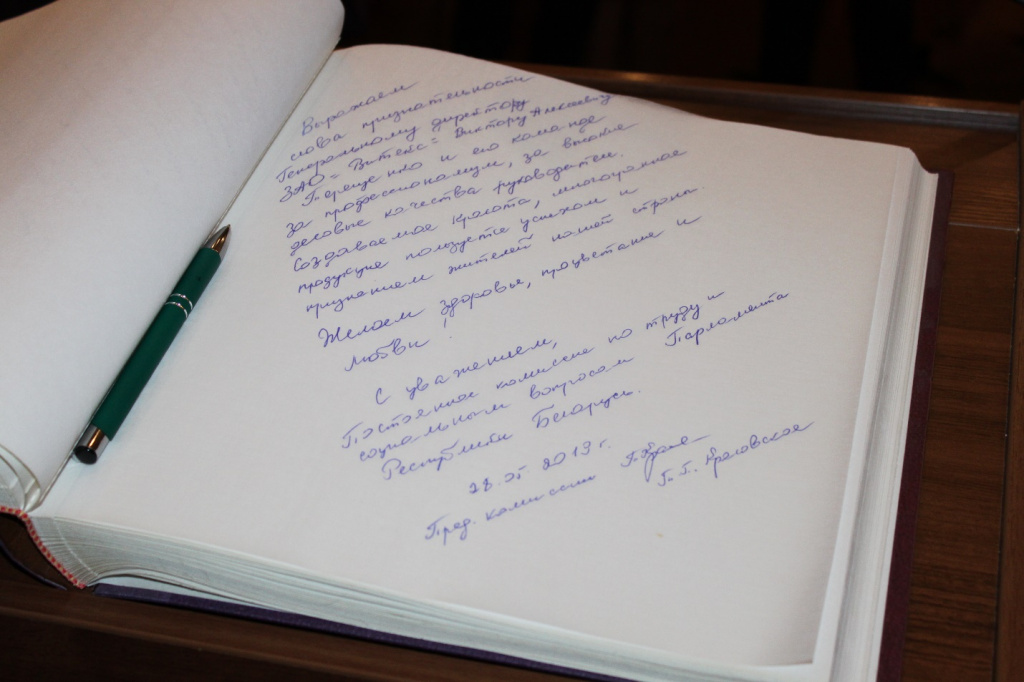 Выражаем
слова признательности
Генеральному директору
ЗАО "Витэкс" Виктору Алексеевичу
Терещенко и его команде
за профессионализм, за высокие
деловые качества руководителя.
Создаваемая красота, многогранная
продукция пользуется успехом и
признанием жителей нашей страны.
Желаем здоровья, процветания и
любви!
С уважением,
Постоянная комиссия по труду и
социальным вопросам Парламента
Республики Беларусь.
2013 г.
Пред. комиссии